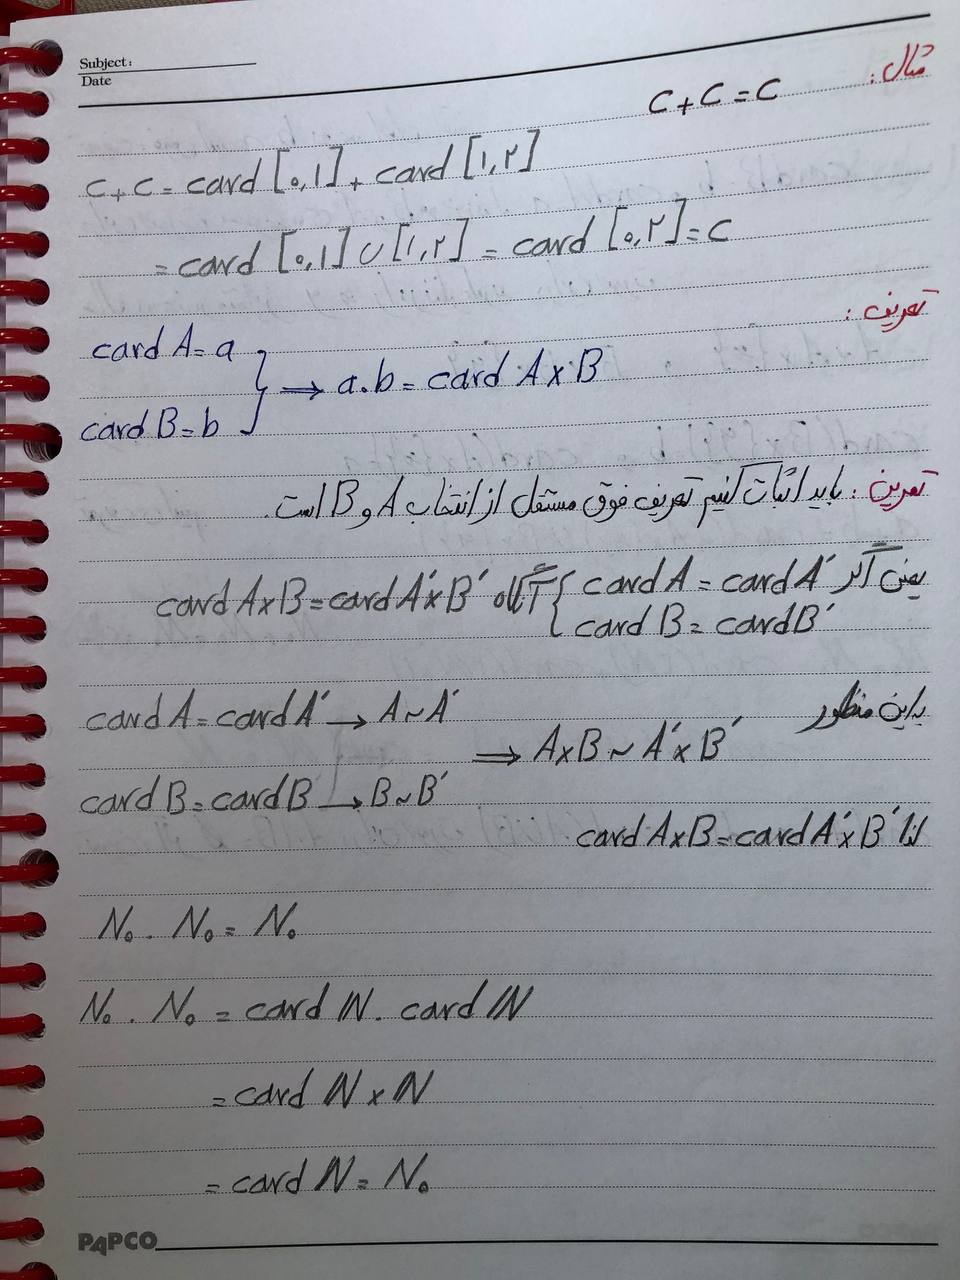 Subject:
Date
مثال:
C + C = C
C + C = card [۰,۱] + card [۱,۲]
= card [۰,۱] ∪ [۱,۲] = card [۰,۲] = C
تعریف:
card A = a
card B = b } → a.b = card A × B
تمرین: باید اثبات کنیم تعریف فوق مستقل از انتخاب A و B است.
یعنی اگر { card A = card A′
card B = card B′ آنگاه card A×B = card A′×B′
به این منظور
card A = card A′ → A ~ A′
card B = card B → B ~ B′
⇒ A×B ~ A′×B′
لذا card A×B = card A′×B′
N₀ . N₀ = N₀
N₀ . N₀ = card ℕ . card ℕ
= card ℕ × ℕ
= card ℕ = N₀
PAPCO